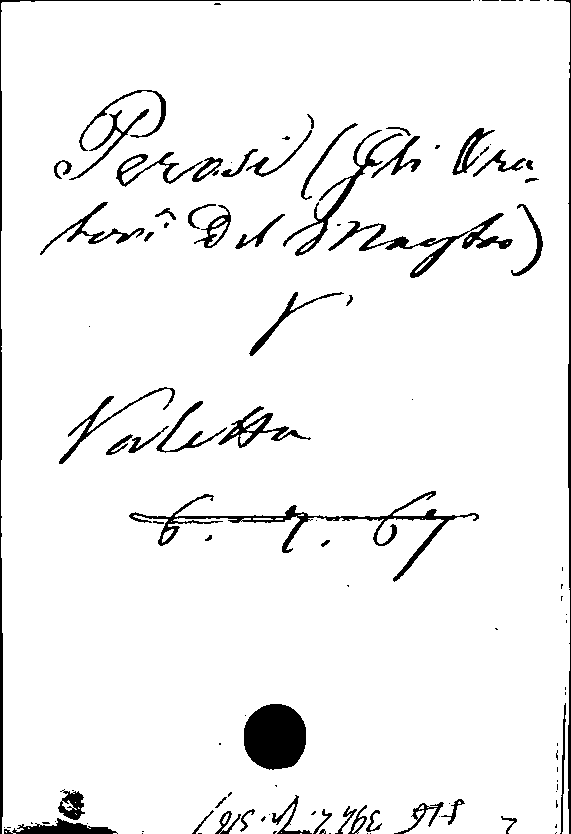 Perosi (Gli Ora-
tori Del Maestro)
V
Valetta
6. 7. 67